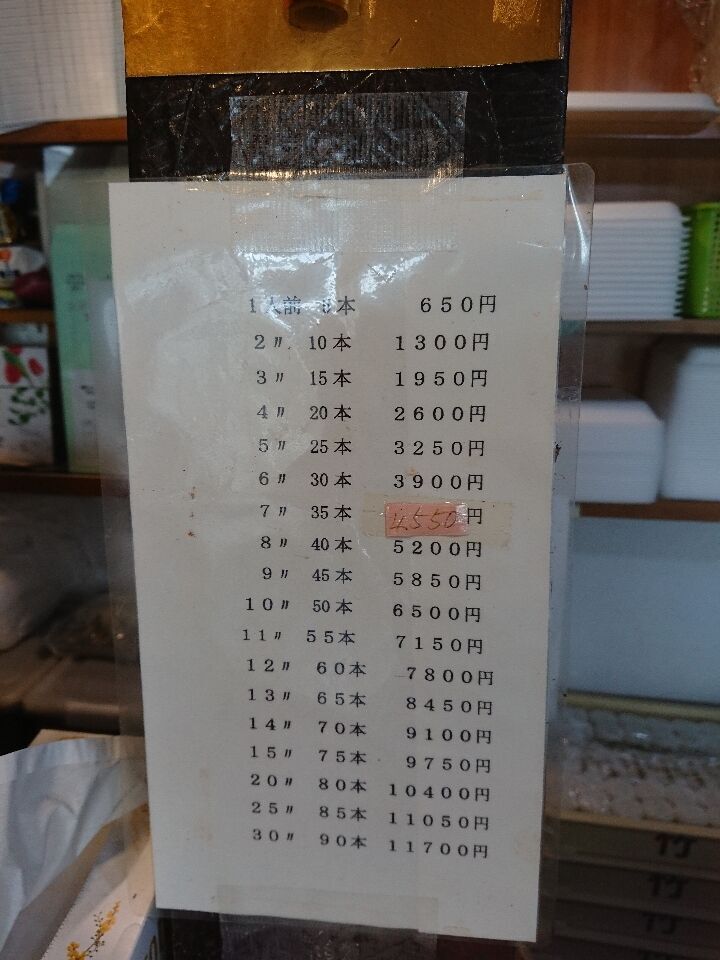 1人前 5本 650円
2〃 10本 1300円
3〃 15本 1950円
4〃 20本 2600円
5〃 25本 3250円
6〃 30本 3900円
7〃 35本 4550円
8〃 40本 5200円
9〃 45本 5850円
10〃 50本 6500円
11〃 55本 7150円
12〃 60本 7800円
13〃 65本 8450円
14〃 70本 9100円
15〃 75本 9750円
20〃 80本 10400円
25〃 85本 11050円
30〃 90本 11700円